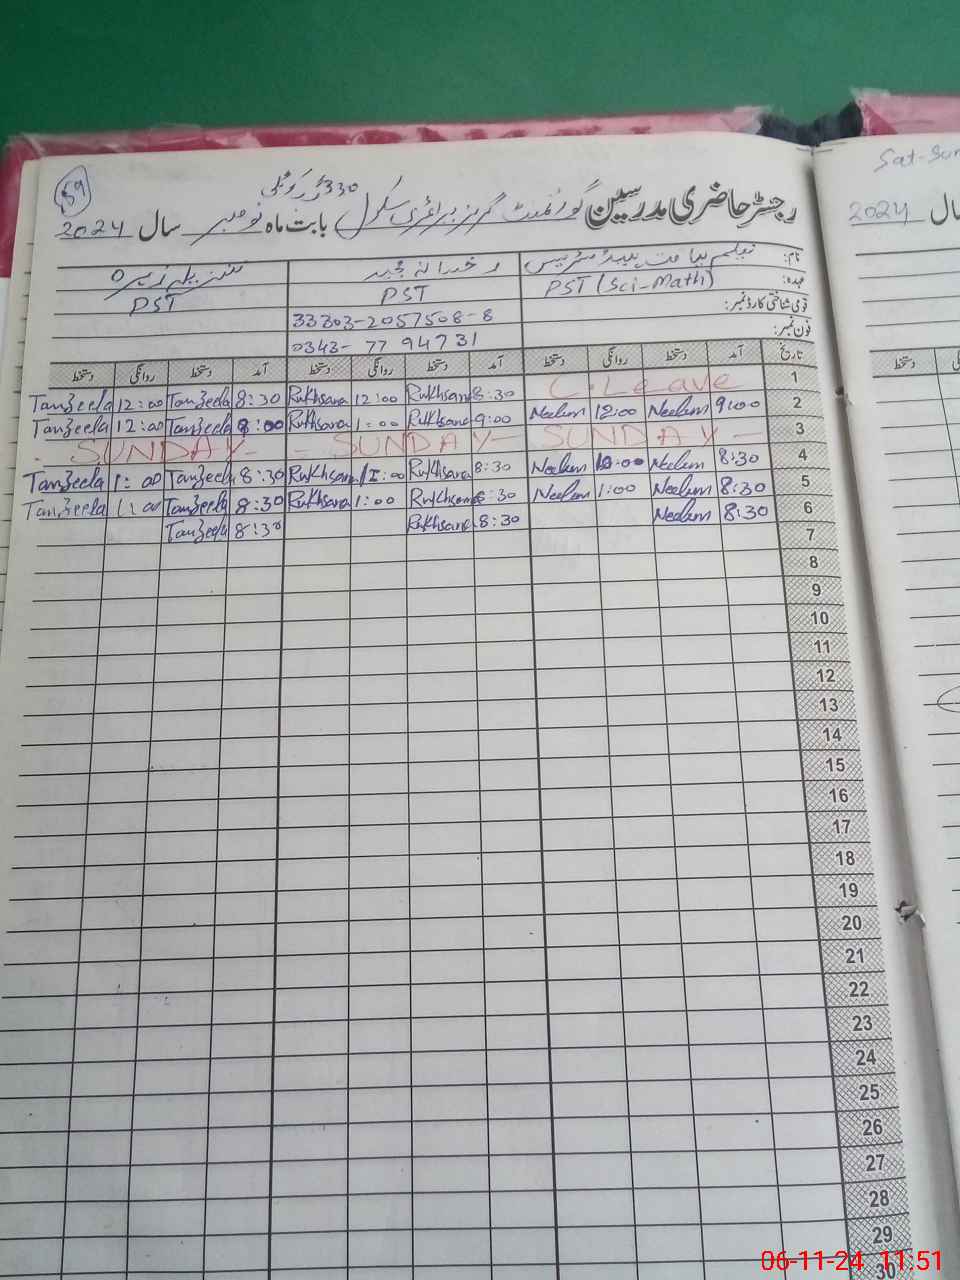 59
330 گ ب
رجسٹر حاضری مدرسین گورنمنٹ گرلز پرائمری سکول بابت ماہ نومبر سال 2024
نام: نیلم
عہدہ: PST (Sci-Math) PST PST
قومی شناختی کارڈ نمبر: 33303-2057508-8
فون نمبر: 0343- 77 94731
تاریخ آمد دستخط روانگی دستخط آمد دستخط روانگی دستخط آمد دستخط روانگی دستخط
1 C. Leave 8:30 Rukhsana 12:00 Rukhsana 8:30 Tanzeela 12:00 Tanzeela
2 9:00 Neelum 12:00 Neelum 9:00 Rukhsana 1:00 Rukhsana 8:00 Tanzeela 12:00 Tanzeela
3 SUNDAY - SUNDAY - SUNDAY -
4 8:30 Neelum Neelum 8:30 Rukhsana 1:00 Rukhsana 8:30 Tanzeela 1:00 Tanzeela
5 8:30 Neelum 1:00 Neelum 8:30 Rukhsana 1:00 Rukhsana 8:30 Tanzeela 1:00 Tanzeela
6 8:30 Neelum 8:30 Rukhsana 8:30 Tanzeela
7
8
9
10
11
12
13
14
15
16
17
18
19
20
21
22
23
24
25
26
27
28
29
30
Sat-Sun
سال 2024
دستخط
06-11-24 11:51